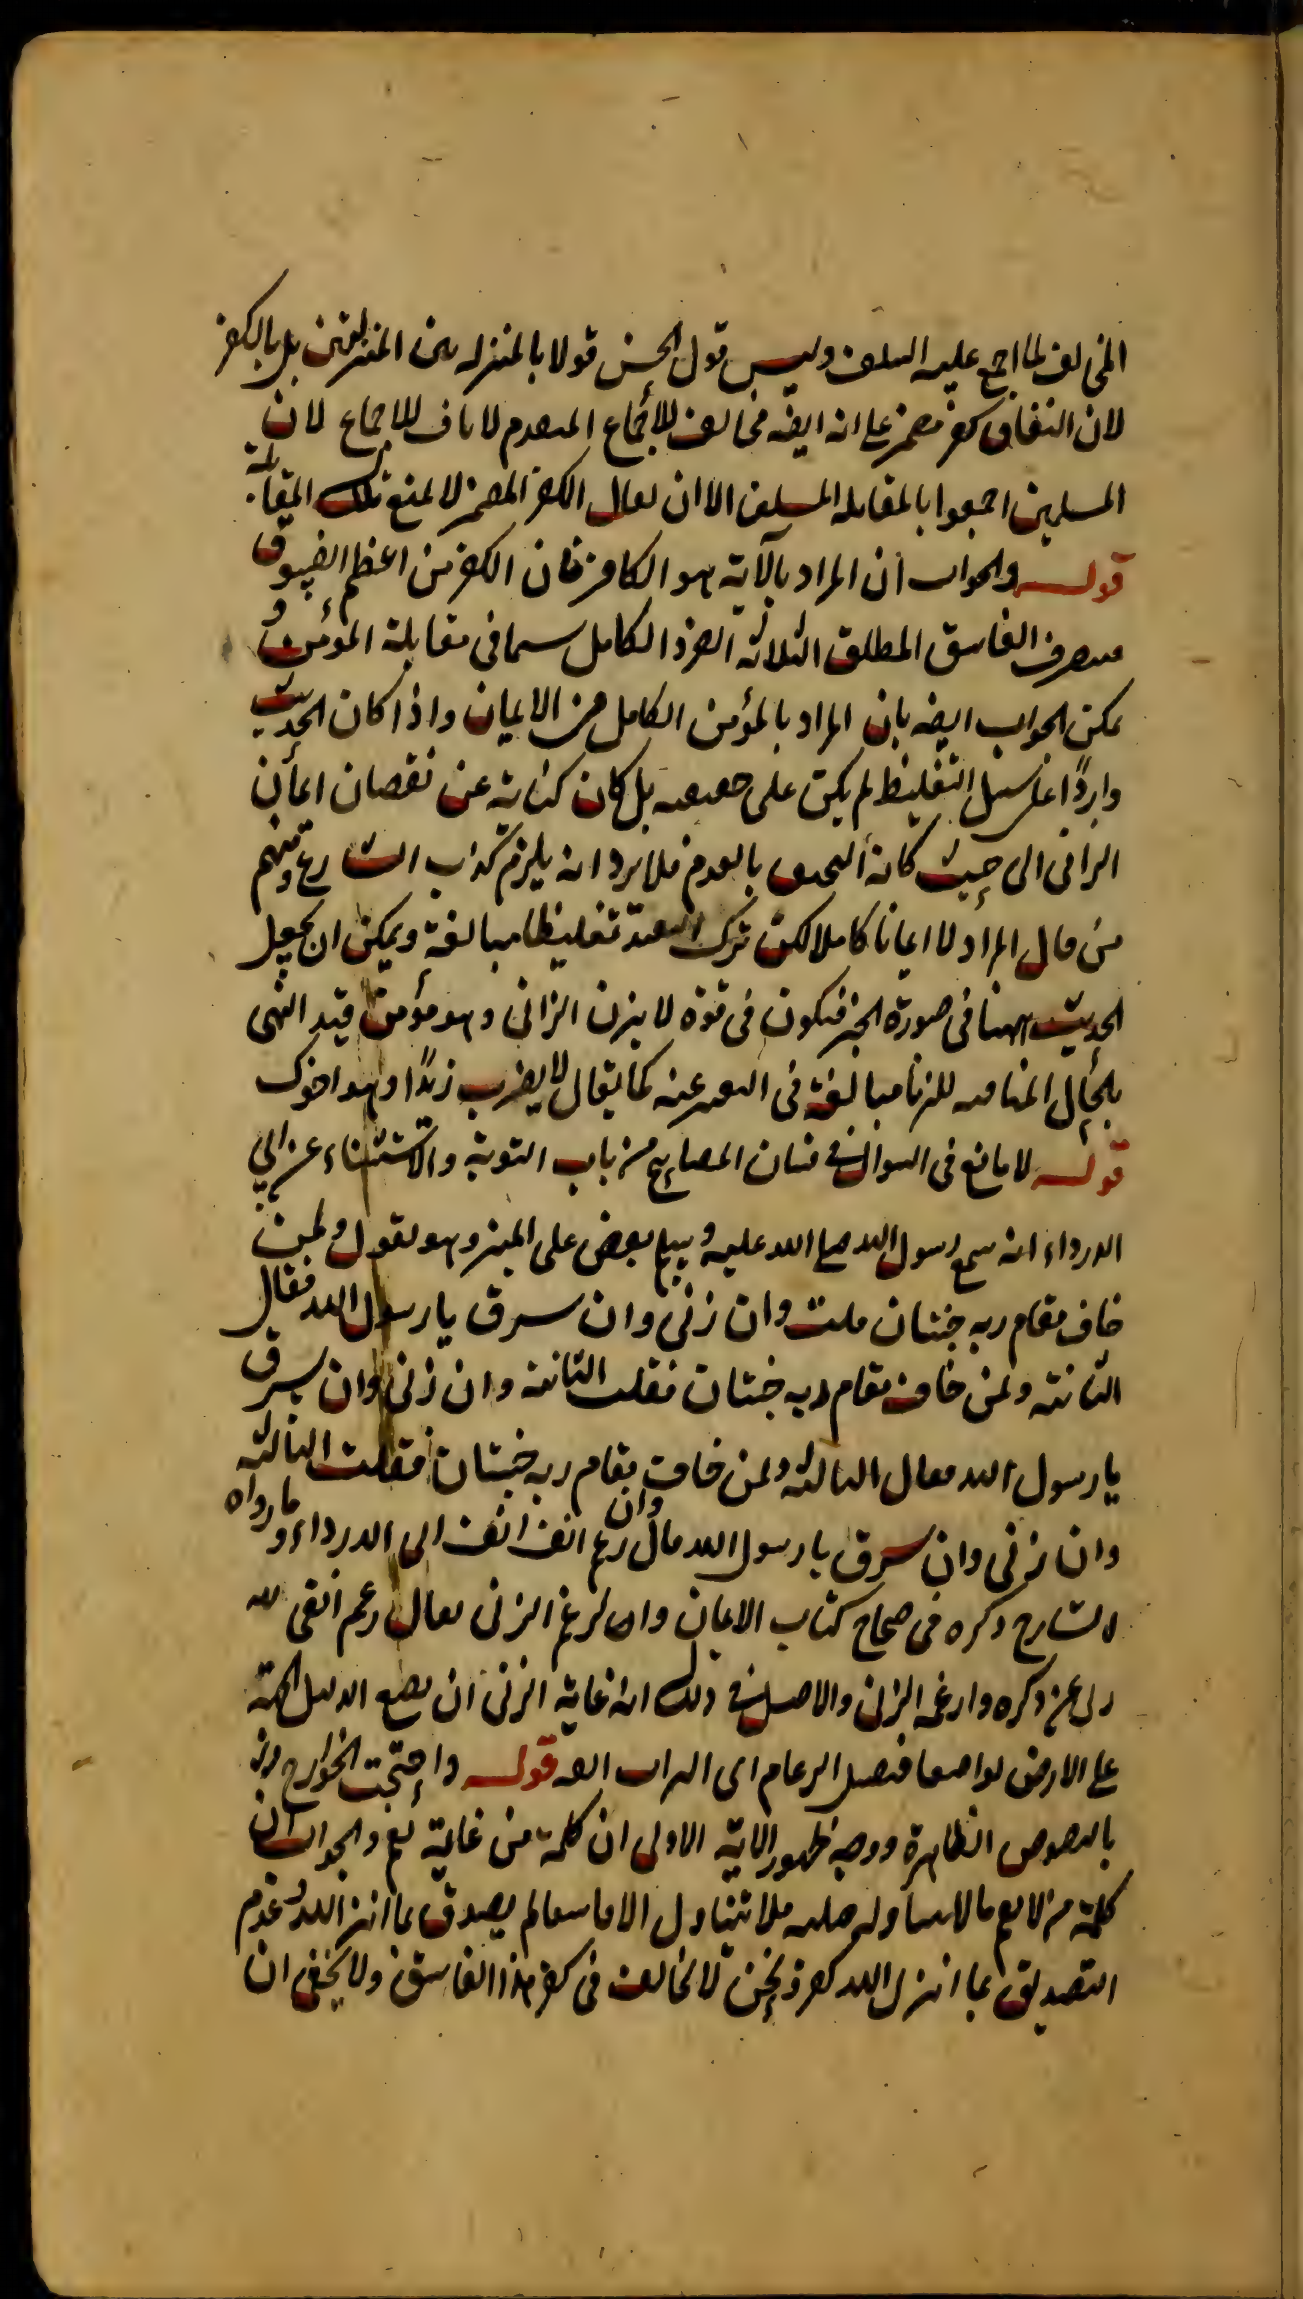 المخالف لما اجمع عليه السلف وليس قول الحسن قولا بالمنزلة بين المنزلتين بل بالكفر
لان النفاق كفر مضمر على انه ايضه مخالف للاجماع المتقدم لا ناف للاجماع لان
المسلمين اجمعوا بالمقابلة الا ان يقال الكفر المضمر لا يمنع تلك المقابلة
قوله والجواب ان المراد بالآية هو الكافر فان الكفر من اعظم الفسوق
الفاسق المطلق الفرد الكامل سيما في مقابلة المؤمن و
يمكن الجواب ايضه بان المراد بالمؤمن الكامل من الايمان واذا كان الحديث
واردًا على سبيل التغليظ لم يكن على حقيقته بل كان كناية عن نقصان ايمان
الزاني الى حيث كانه التحق بالعدم فلا يرد انه يلزم كذاب الشارع ومنهم
من قال المراد لا ايمانا كاملا لكن ترك تغليظا مبالغة ويمكن ان يجعل
الحديث ههنا في صورة الخبر فيكون في قوة لا يزن الزاني وهو مؤمن قيد النهي
بالحال المنافية للزنا مبالغة في عنه كما يقال لا يضرب زيدًا وهو اخوك
قوله لا مانع في السؤال المصابيح من باب التوبة والاستثناء عن ابي
الدرداء انه سمع رسول الله صلى الله عليه وسلم على المنبر وهو يقول ولمن
خاف مقام ربه جنتان قلت وان زنى وان سرق يا رسول الله فقال
الثانية ولمن خاف مقام ربه جنتان فقلت الثانية وان زنى وان سرق
يا رسول الله فقال الثالثة ولمن خاف مقام ربه جنتان فقلت الثالثة
وان زنى وان سرق يا رسول الله قال وان رغم انف ابى الدرداء وما رواه
الشارح ذكره في صحاح كتاب الايمان يقال رغم انفى لله
ذكره وارغمه والاصل في ذلك ان غاية ان يضع
على الارض اى التراب قوله واحتجت الخوارج
بالنصوص الظاهرة ووجه ظهور الاية الاولى ان كلمة من عامة والجواب ان
كلمة من فلا تتناول الا لم يصدق بما انزل الله وعدم
التصديق بما انزل الله كفر ونحن لا نخالف في كفر هذا الفاسق ولا يخفى ان